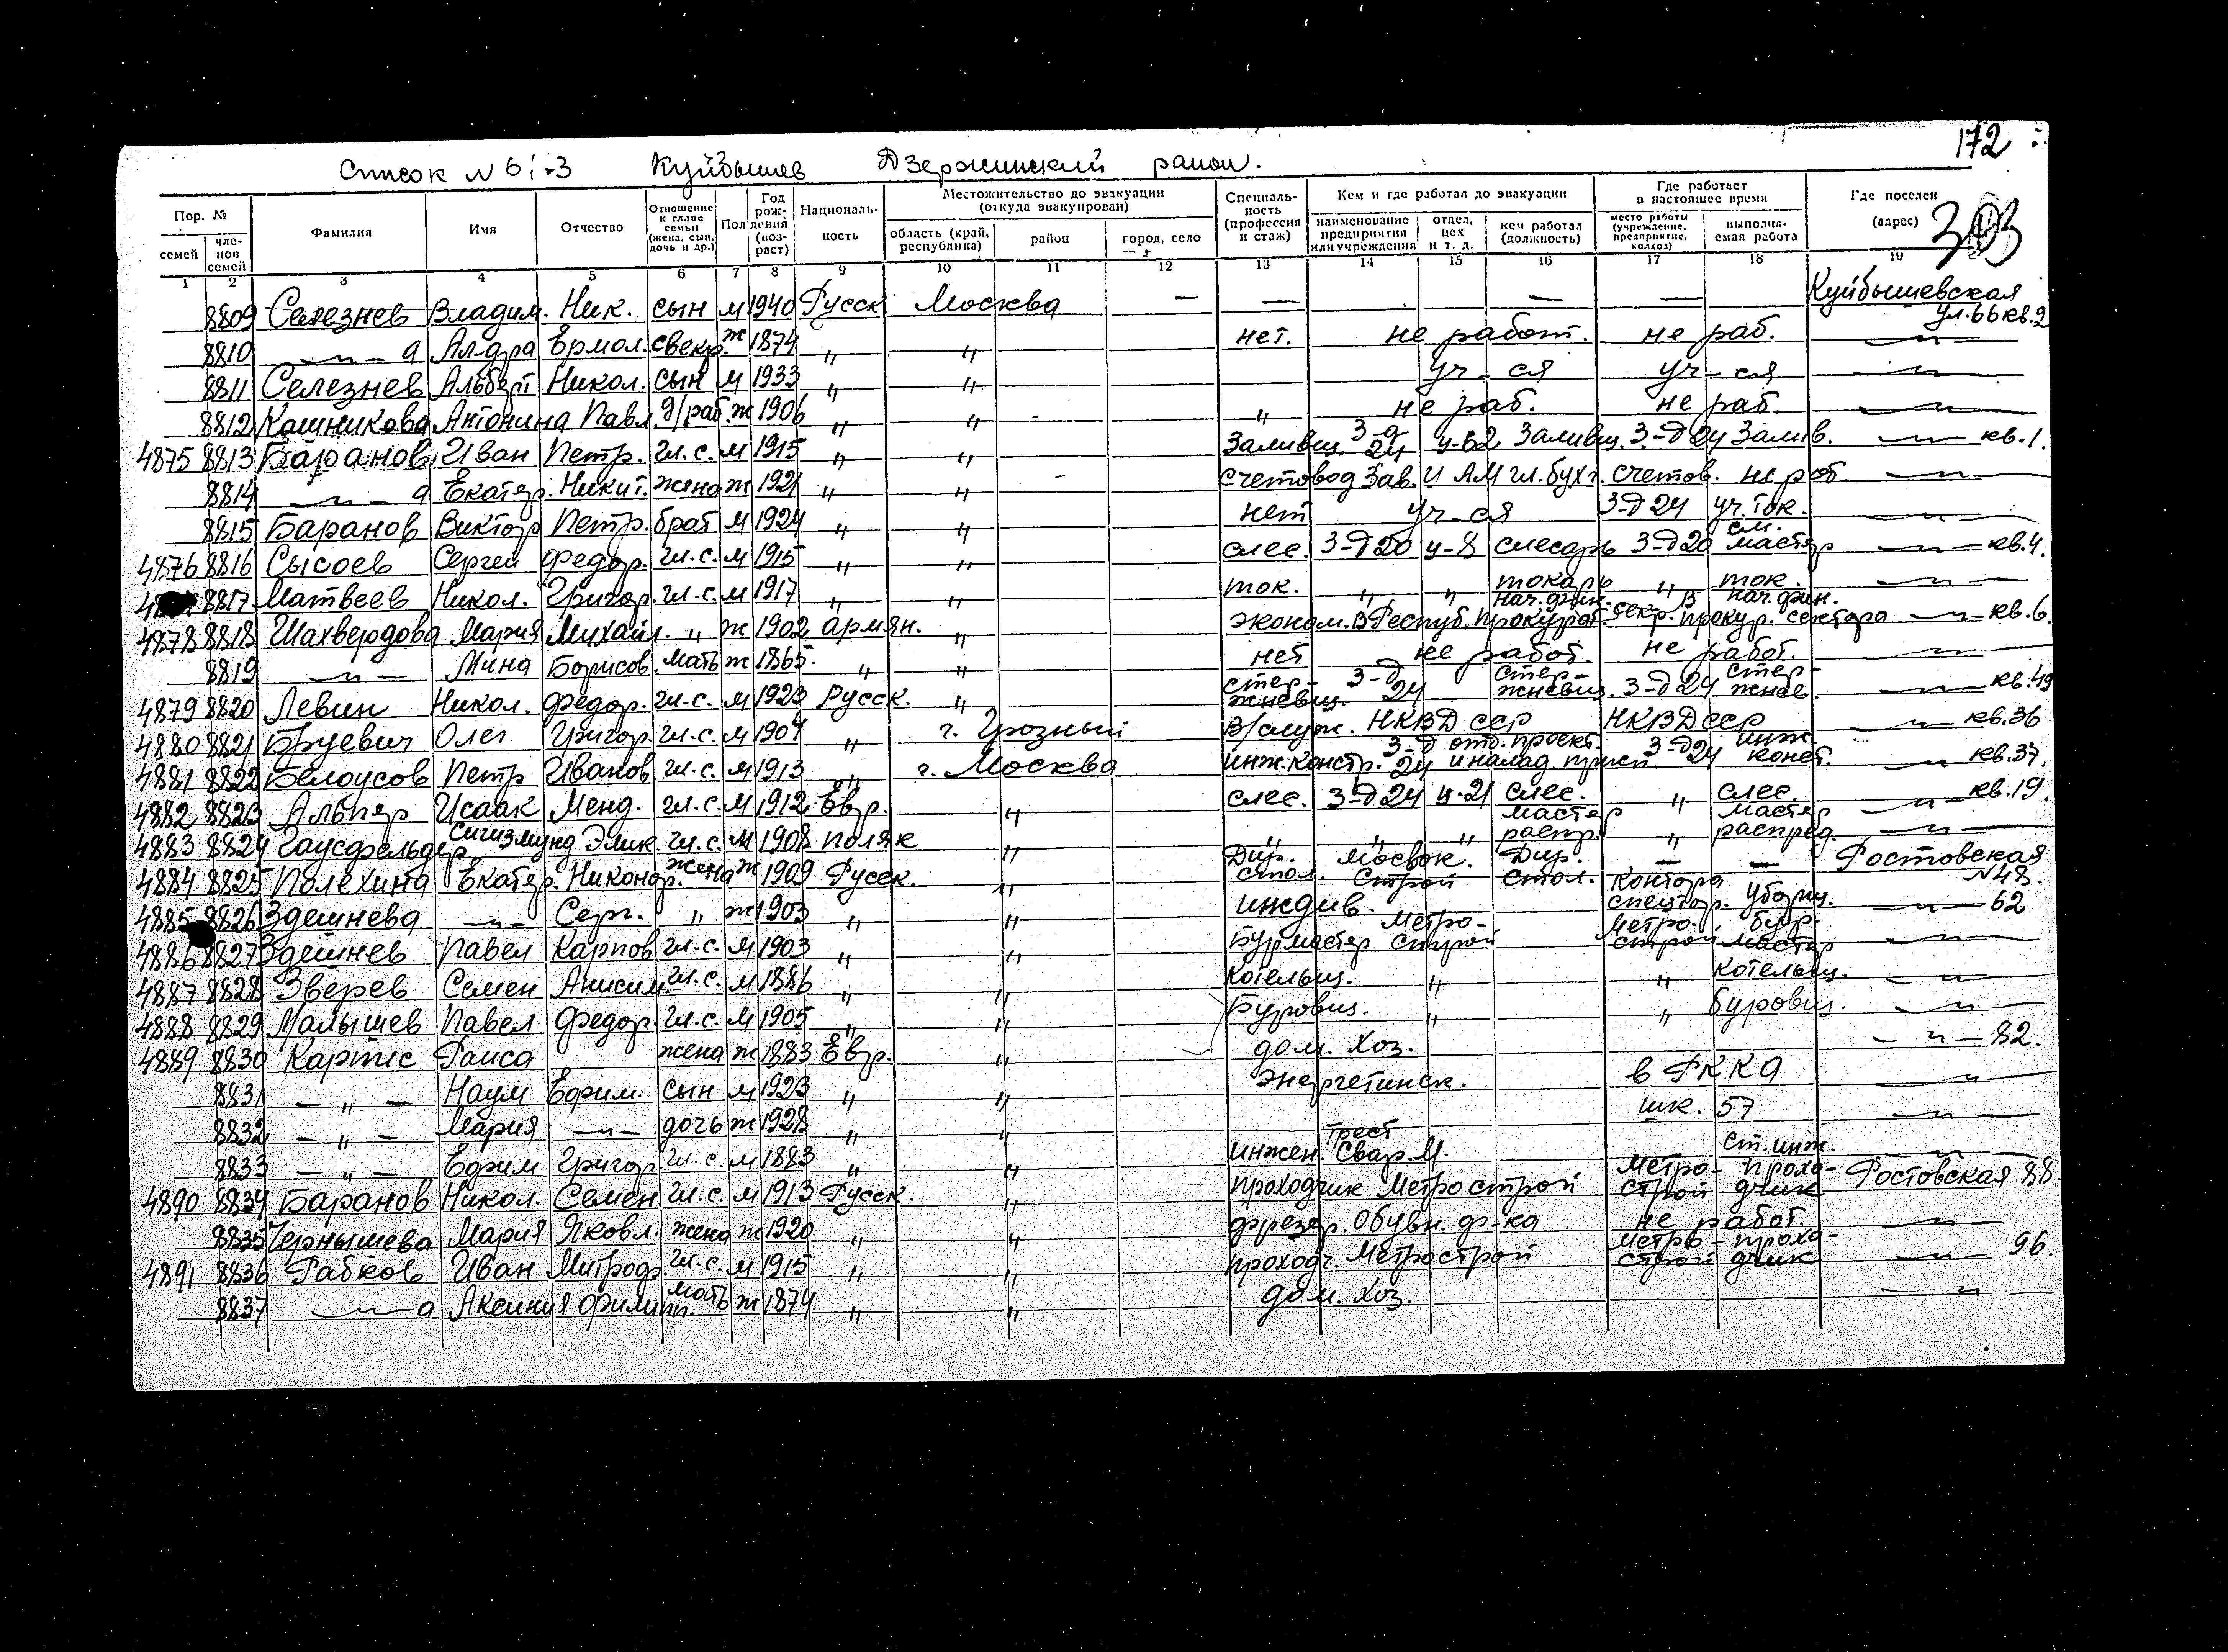 172
Список N 61-3 Куйбышев Дзержинский район.
303
Пор. № семей членов семей Фамилия Имя Отчество Отношение к главе семьи (жена, сын, дочь и др.) Пол Год рождения (возраст) Националь-ность Местожительство до эвакуации (откуда эвакуирован) область (край, республика) район город, село Специаль-ность (профессия и стаж) Кем и где работал до эвакуации наименование предприятия или учреждения отдел, цех и т. д. кем работал (должность) Где работает в настоящее время место работы (учреждение, предприятие, колхоз) выполня-емая работа Где поселен (адрес)
1 2 3 4 5 6 7 8 9 10 11 12 13 14 15 16 17 18 19
8809 Селезнев Владим. Ник. сын м 1940 Русск Москва — — — — Куйбышевская ул. 66 кв. 2
8810 —"— а Ал-дра Ермол. свекр. ж 1874 " " нет. не работ. не раб. —"—
8811 Селезнев Альберт Никол. сын м 1933 " " уч-ся уч-ся —"—
8812 Кашникова Антонина Павл. д/раб. ж 1906 " " " не раб. не раб. —"—
4875 8813 Баранов Иван Петр. гл. с. м 1915 " " Заливщ. З-д 24 ц-62 Заливщ. З-д 24 Залив. —"— кв. 1.
8814 —"— а Екатер. Никит. жена ж 1921 " " Счетовод Зав. И АМ гл. бухг. счетов. не раб. —"—
8815 Баранов Виктор Петр. брат м 1924 " " нет уч-ся З-д 24 уч. ток. —"—
4876 8816 Сысоев Сергей Федор. гл. с. м 1915 " " слес. З-д 20 ц-8 слесарь З-д 20 см. мастер —"— кв. 4.
8817 Матвеев Никол. Григор. гл. с. м 1917 " " ток. " " токарь " ток. —"—
4878 8818 Шахвердова Мария Михайл. " ж 1902 армян. " эконом. В Респуб. Прокурат. нач. фин. сек. В прокур. нач. фин. сектора —"— кв. 6.
8819 —"— Мина Борисов. мать ж 1865. " " нет не работ. не работ. —"—
4879 8820 Левин Никол. Федор. гл. с. м 1923 Русск. " стер-жневщ. З-д 24 стер-жневщ. З-д 24 стер-жнев. —"— кв. 49
4880 8821 Бруевич Олег Григор. гл. с. м 1904 " г. Грозный В/служ. НКВД ССР НКВД ССР —"— кв. 36
4881 8822 Белоусов Петр Иванов гл. с. м 1913 " г. Москва инж. констр. З-д 24 отд. проект. и налад. З-д 24 инж. конст. —"— кв. 37.
4882 8823 Альпер Исаак Менд. гл. с. м 1912 Евр. " слес. З-д 24 ц-21 слес. " слес. —"— кв. 19.
4883 8824 Гаусфельдер Сигизмунд Эмик. гл. с. м 1908 поляк " " " " мастер распр. " мастер распред. —"—
4884 8825 Полехина Екатер. Никонор. жена ж 1909 Русск. " Дир. стол. Мосвок. строй Дир. стол. — — Ростовская N 48.
4885 8826 Здешнева —"— Серг. " ж 1903 " " иждив. контора спецтор. уборщ. —"— 62
4886 8827 Здешнев Павел Карпов гл. с. м 1903 " " Бурмастер Метро-строй Метро-строй бур. мастер —"—
4887 8828 Зверев Семен Анисим. гл. с. м 1886 " " Котельщ. " " котельщ. —"—
4888 8829 Малышев Павел Федор. гл. с. м 1905 " " Буровщ. " " буровщ. —"—
4889 8830 Картис Раиса жена ж 1883 Евр. " дом. хоз. —"— 82.
8831 —"— Наум Ефим. сын м 1923 " " Энергетинск. в РККА —"—
8832 —"— Мария —"— дочь ж 1928 " " шк. 57 —"—
8833 —"— Ефим Григор. гл. с. м 1883 " " инжен. трест Свар. М. ст. инж.
4890 8834 Баранов Никол. Семен. гл. с. м 1913 Русск. " проходчик Метрострой Метро-строй прохо-дчик Ростовская 88.
8835 Чернышева Мария Яковл. жена ж 1920 " " фрезер. Обувн. ф-ка не работ. —"—
4891 8836 Рабков Иван Митроф. гл. с. м 1915 " " проходч. Метрострой метро-строй прохо-дчик —"— 96.
8837 —"— а Аксиния Филипп. мать ж 1874 " " дом. хоз. —"—